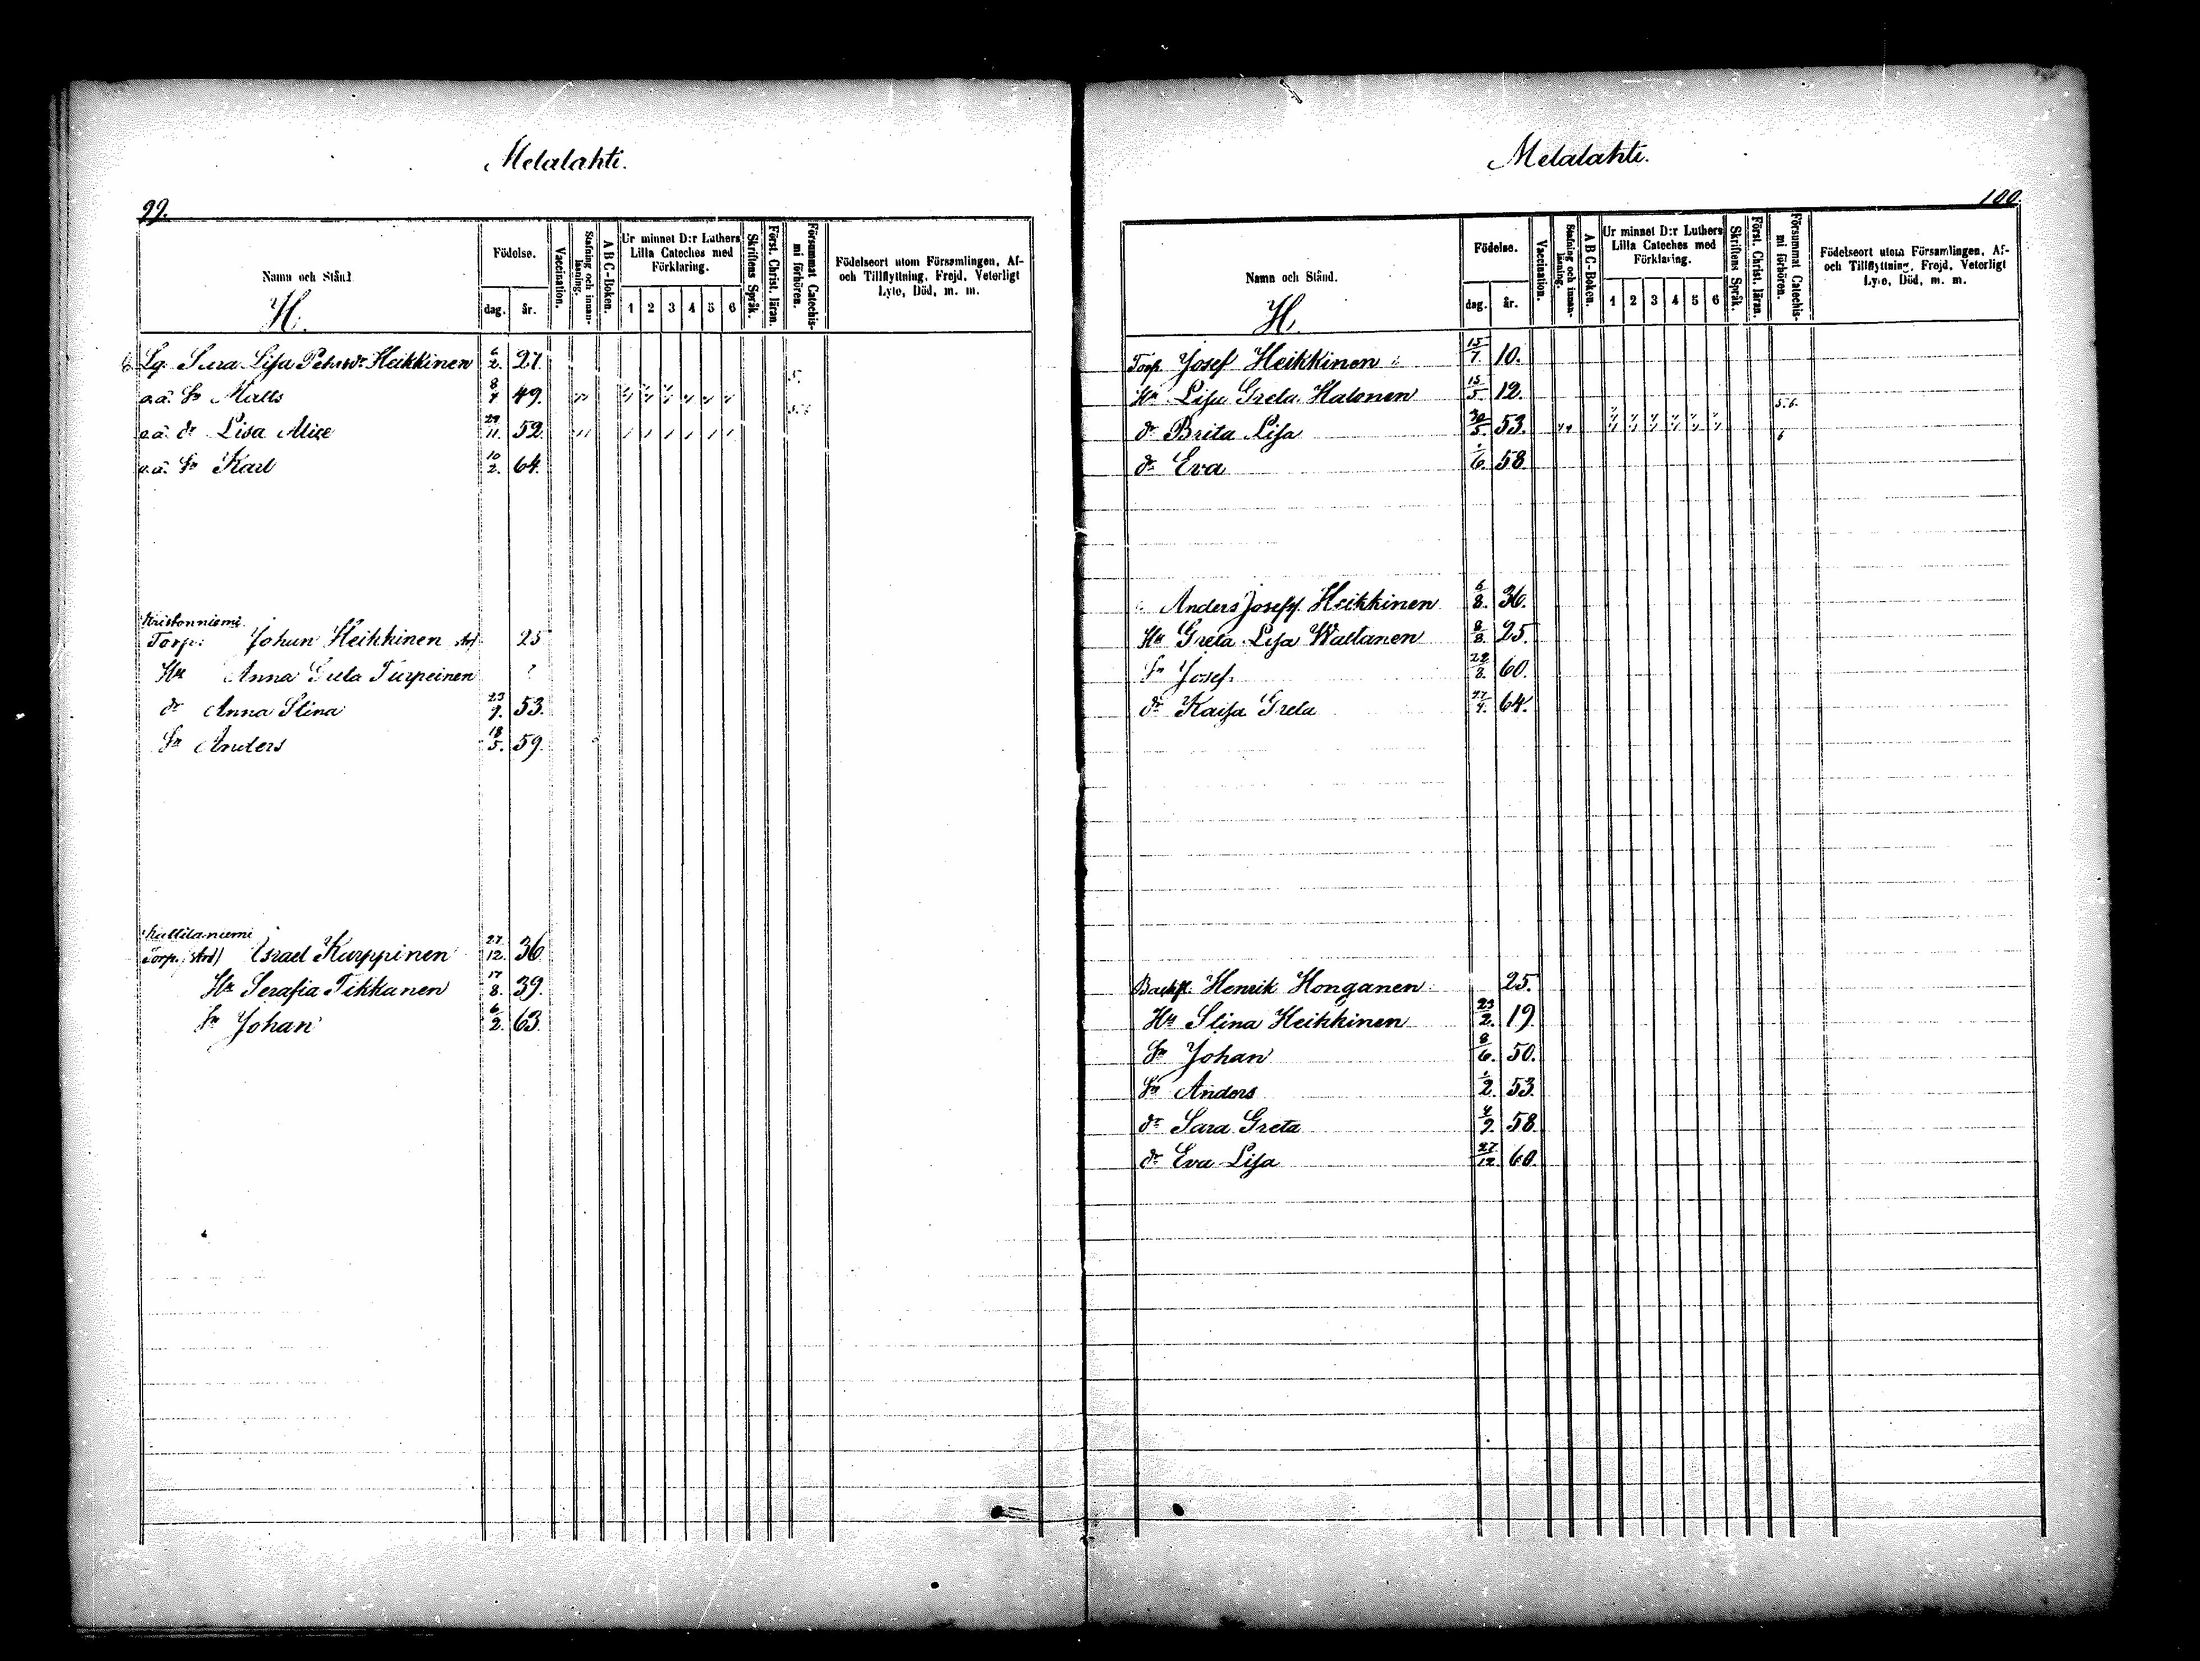 Melalahti.
99.
Namn och Stånd.
H.
Födelse.
dag.
år.
Vaccination.
Stafning och innan-
läsning.
A B C-Boken.
Ur minnet D:r Luthers
Lilla Cateches med
Förklaring.
1 2 3 4 5 6
Skriftens Språk.
Först. Christ. läran.
Försummat Catechis-
mi förhören.
Födelseort utom Församlingen, Af-
och Tillflyttning, Frejd, Veterligt
Lyte, Död, m. m.
Lg. Sara Lisa Petersdr Heikkinen 6/2. 27. 5.
o.ä. Sn Matts 49.
o.ä. dr Lisa Alice 29/11. 52.
o.ä. Sn Karl 10/2. 64.
Kristonniemi.
Torp: Johan Heikkinen 25
Hu Anna Greta Turpeinen ?
dr Anna Stina 53.
Sn Anders 18/5. 59.
Kattilaniemi
Torp. Israel Karppinen 27/12. 36
Hu Serafia Tikkanen 17/8. 39.
Sn Johan 6/2. 63.
Melalahti.
100.
Namn och Stånd.
H.
Födelse.
dag.
år.
Vaccination.
Stafning och innan-
läsning.
A B C-Boken.
Ur minnet D:r Luthers
Lilla Cateches med
Förklaring.
1 2 3 4 5 6
Skriftens Språk.
Först. Christ. läran.
Försummat Catechis-
mi förhören.
Födelseort utom Församlingen, Af-
och Tillflyttning, Frejd, Veterligt
Lyte, Död, m. m.
Torp. Josef Heikkinen 15/7. 10.
Hu Lisa Greta Halonen 15/5. 12. 5.6.
dr Brita Lisa 30/5. 53. 6
dr Eva 1/6. 58
Anders Josefss. Heikkinen 6/8. 36.
Hu Greta Lisa Waltanen 8/8. 25.
Sn Josef. 60.
dr Kaisa Greta 64.
Backst. Henrik Honganen 25.
Hu Stina Heikkinen 23/2. 19.
Sn Johan 8/6. 50.
Sn Anders 1/2. 53.
dr Sara Greta 58.
dr Eva Lisa 27/12. 60.